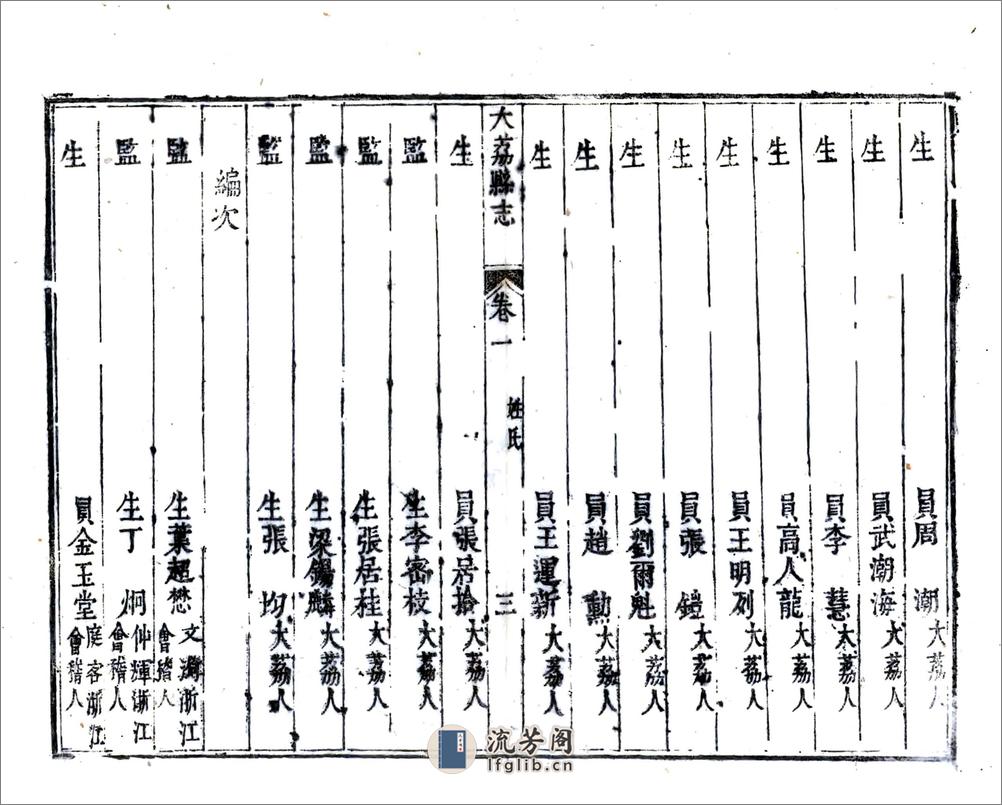 生員周潮大荔人
生員武潮海大荔人
生員李慧大荔人
生員高人龍大荔人
生員王明列大荔人
生員張鎧大荔人
生員劉爾魁大荔人
生員趙勳大荔人
生員王運新大荔人
大荔縣志 卷一 姓氏 三
生員張居拾大荔人
監生李密枝大荔人
監生張居桂大荔人
監生梁錫麟大荔人
監生張均大荔人
編次
監生葉超懋文瀾浙江會稽人
監生丁炯仲輝浙江會稽人
生員金玉堂庭客浙江會稽人
流芳阁
lfglib.cn